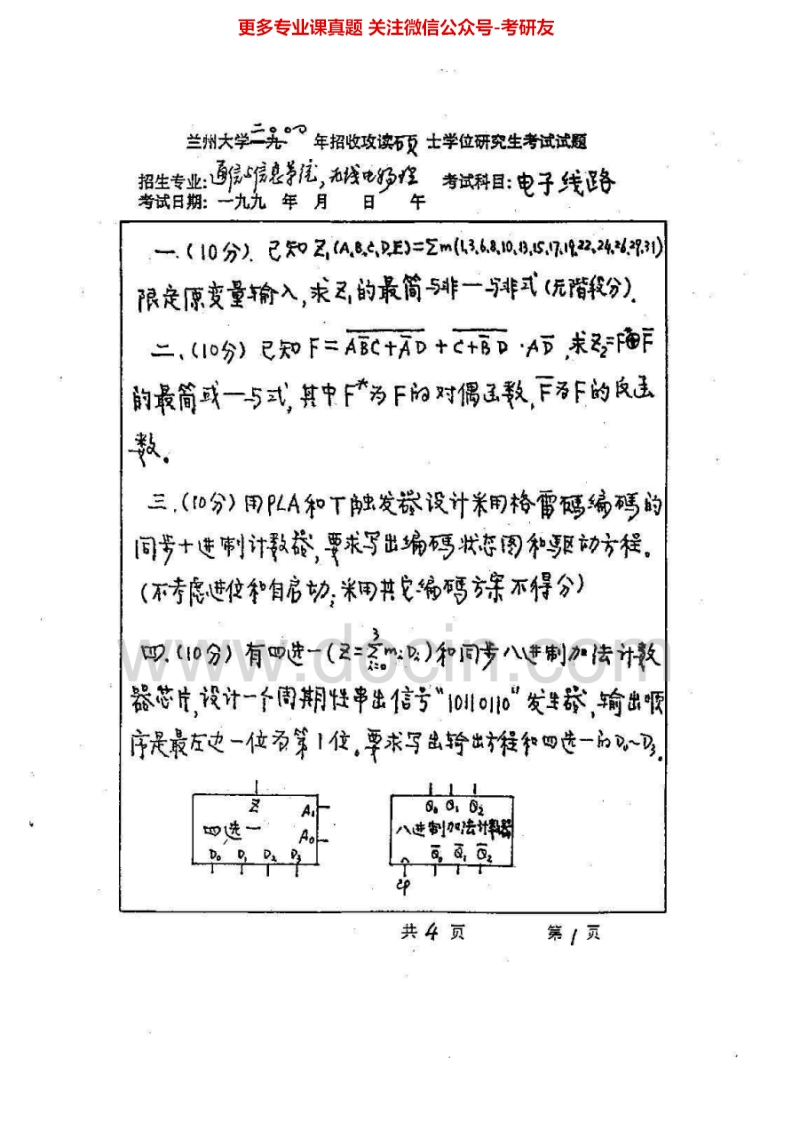 更多专业课真题 关注微信公众号-考研友
二〇〇〇
兰州大学一九 年招收攻读硕 士学位研究生考试试题
招生专业:通信与信息系统,无线电物理 考试科目:电子线路
考试日期: 一九九 年 月 日 午
一.(10分).已知Z₁(A,B,C,D,E)=Σm(1,3,6,8,10,13,15,17,19,22,24,26,29,31)
限定原变量输入,求Z₁的最简与非一与非式(无阶段分).
二、(10分)已知F=\overline{A\overline{B}C+\overline{A}D}+\overline{C+\overline{B}D}·A\overline{D},求Z₂=F*⊕\overline{F}
的最简或一与式,其中F*为F的对偶函数,\overline{F}为F的反函
数。
三.(10分)用PLA和T触发器设计采用格雷码编码的
同步十进制计数器,要求写出编码状态图和驱动方程。
(不考虑进位和自启动;采用其它编码方案不得分)
四.(10分)有四选一(Z=\sum_{i=0}^{3}mᵢDᵢ)和同步八进制加法计数
器芯片,设计一个周期性串出信号“10110110”发生器,输出顺
序是最左边一位为第1位。要求写出输出方程和四选一的D₀~D₃.
Z A₁
四选一 A₀
D₀ D₁ D₂ D₃
Q₀ Q₁ Q₂
八进制加法计数器
\overline{Q}₀ \overline{Q}₁ \overline{Q}₂
cp
www.docin.com
共 4 页 第 1 页